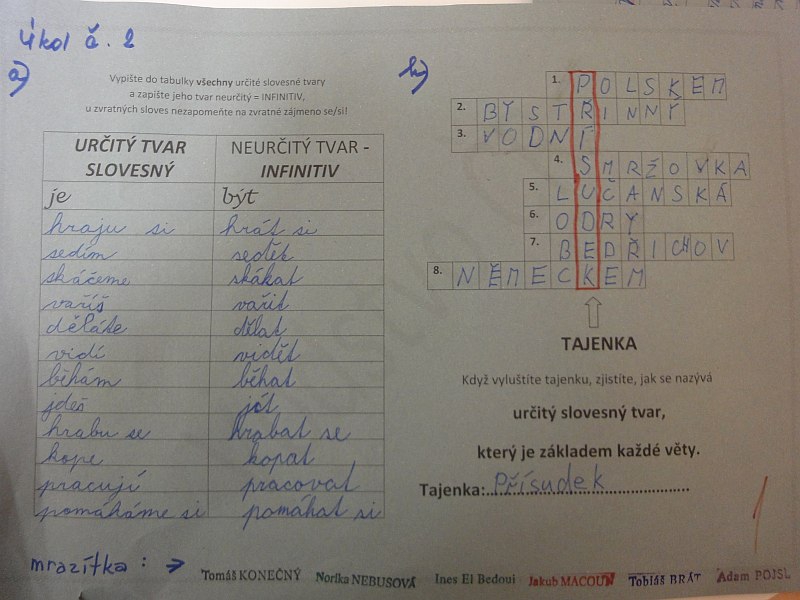 Úkol č. 2
a)
Vypište do tabulky všechny určité slovesné tvary
a zapište jeho tvar neurčitý = INFINITIV,
u zvratných sloves nezapomeňte na zvratné zájmeno se/si!
URČITÝ TVAR SLOVESNÝ NEURČITÝ TVAR - INFINITIV
je být
hraju si hrát si
sedím sedět
skáčeme skákat
vaříš vařit
děláte dělat
vidí vidět
běhám běhat
jdeš jít
hrabu se hrabat se
kope kopat
pracují pracovat
pomáháme si pomáhat si
b)
1. POLSKEM
2. BYSTŘINNÝ
3. VODNÍ
4. SMRŽOVKA
5. LUČANSKÁ
6. ODRY
7. BEDŘICHOV
8. NĚMECKEM
TAJENKA
Když vyluštíte tajenku, zjistíte, jak se nazývá
určitý slovesný tvar,
který je základem každé věty.
Tajenka: Přísudek
mrazítka : → Tomáš KONEČNÝ Norika NEBUSOVÁ Ines El Bedoui Jakub MACOUN Tobiáš BRÁT Adam POJSL